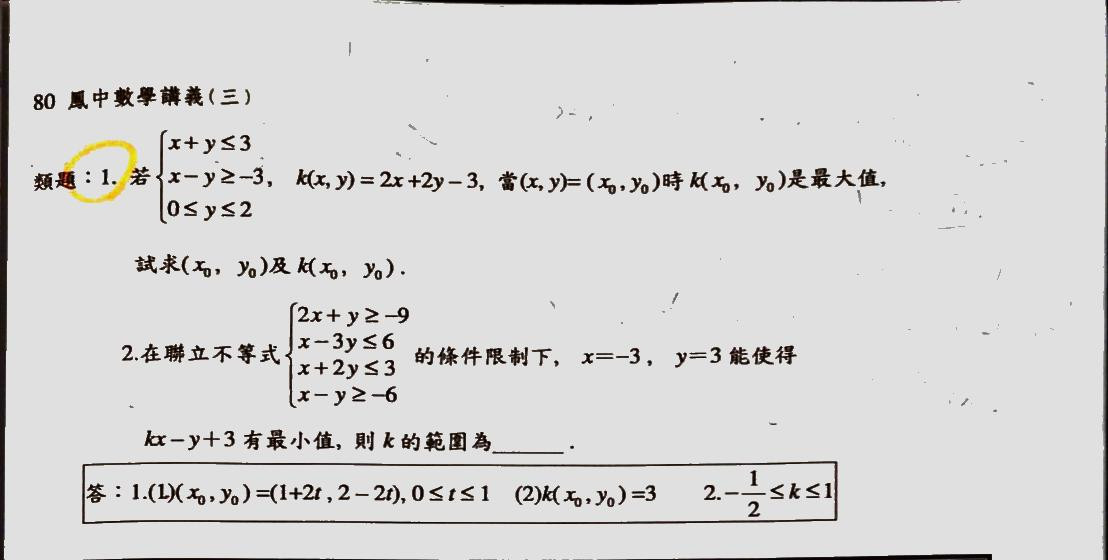 80 鳳中數學講義(三)
類題：1. 若 { x+y≤3
x−y≥−3, k(x, y)=2x+2y−3, 當(x, y)=(x₀, y₀)時 k(x₀, y₀)是最大值,
0≤y≤2
試求(x₀, y₀)及 k(x₀, y₀).
2.在聯立不等式 { 2x+y≥−9
x−3y≤6
x+2y≤3 的條件限制下, x=−3, y=3 能使得
x−y≥−6
kx−y+3 有最小值, 則 k 的範圍為______.
答：1.(1)(x₀, y₀)=(1+2t, 2−2t), 0≤t≤1 (2)k(x₀, y₀)=3 2.−1/2≤k≤1